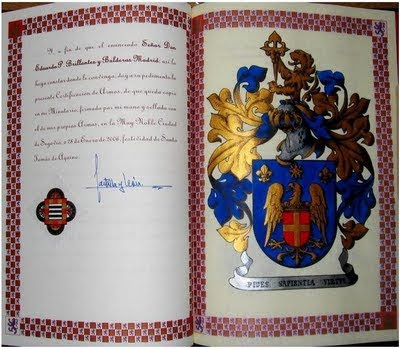 Y a fin de que el enunciado Señor Don
Eduardo P. Brillantes y Balderas Madrid: así lo
haga constar donde le convenga, doy a su pedimento la
presente Certificación de Armas, de que queda copia
en mi Minutario, firmada por mi mano y sellada con
el de mis propias Armas, en la Muy Noble Ciudad
de Segovia, a 28 de Enero de 2006, festividad de Santo
Tomás de Aquino.
FIDES SAPIENTIA VIRTUS